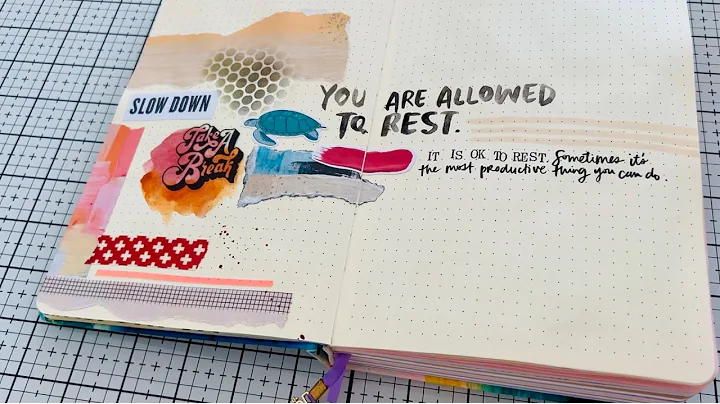 SLOW DOWN
Take A
Break
YOU ARE ALLOWED
TO REST.
IT IS OK TO REST. Sometimes it's
the most productive thing you can do.